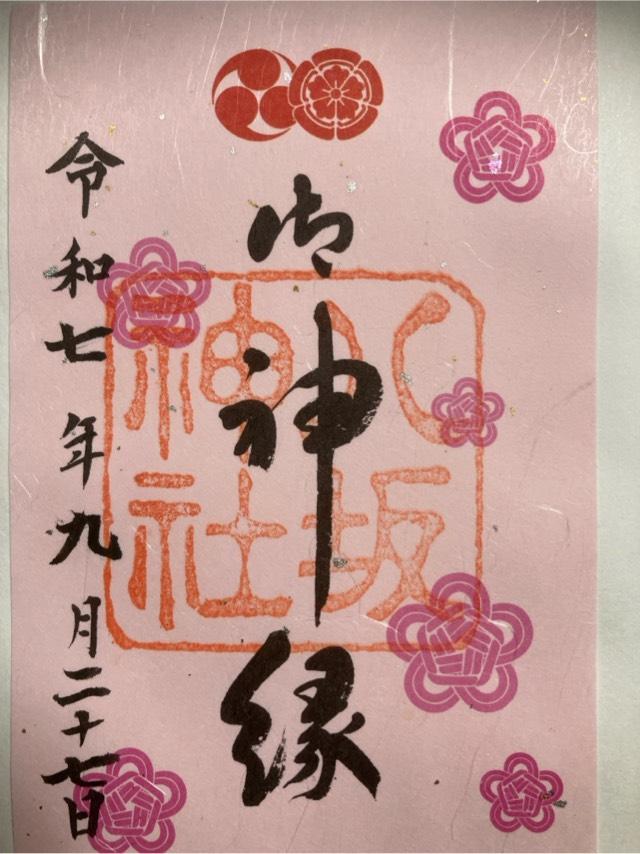 御神縁
八坂
神社
令和七年九月二十七日